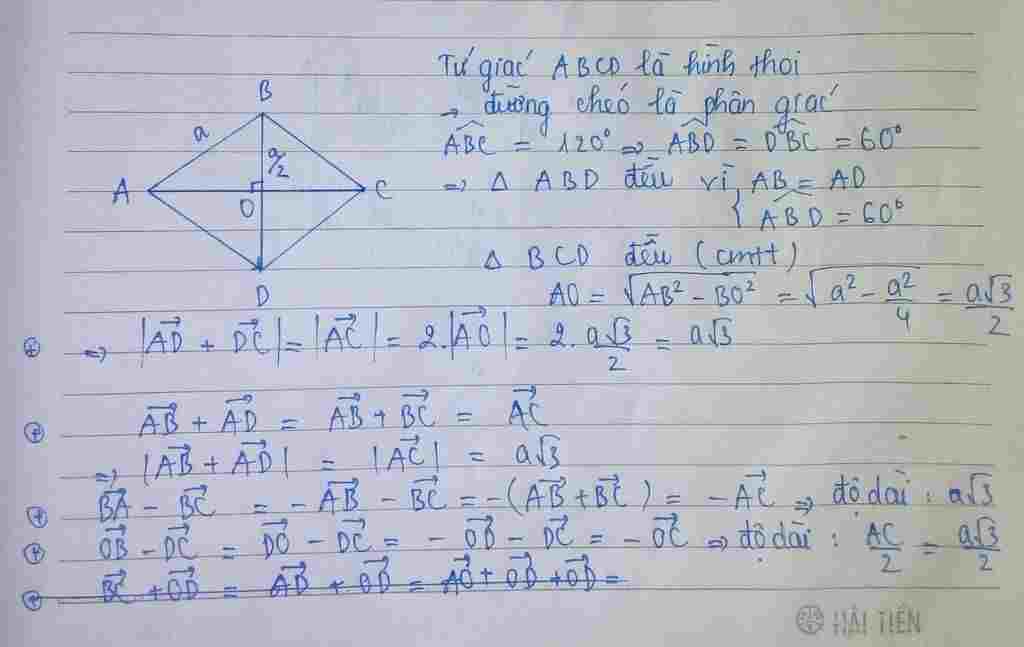 Tứ giác ABCD là hình thoi
→ đường chéo là phân giác
\widehat{ABC} = 120° ⇒ \widehat{ABD} = \widehat{DBC} = 60°
⇒ Δ ABD đều vì { AB = AD
\widehat{ABD} = 60°
Δ BCD đều (cmtt)
AO = √(AB² - BO²) = √(a² - a²/4) = a√3/2
B
a
a/2
A
O
C
D
⊕ ⇒ |\vec{AD} + \vec{DC}| = |\vec{AC}| = 2.|\vec{AO}| = 2. a√3/2 = a√3
⊕ \vec{AB} + \vec{AD} = \vec{AB} + \vec{BC} = \vec{AC}
⇒ |\vec{AB} + \vec{AD}| = |\vec{AC}| = a√3
⊕ \vec{BA} - \vec{BC} = -\vec{AB} - \vec{BC} = -(\vec{AB} + \vec{BC}) = -\vec{AC} ⇒ độ dài : a√3
⊕ \vec{OB} - \vec{DC} = \vec{DO} - \vec{DC} = -\vec{OD} - \vec{DC} = -\vec{OC} ⇒ độ dài : AC/2 = a√3/2
⊕ \vec{BC} + \vec{OD} = \vec{AD} + \vec{OD} = \vec{AO} + \vec{OD} + \vec{OD} =
HẢI TIẾN